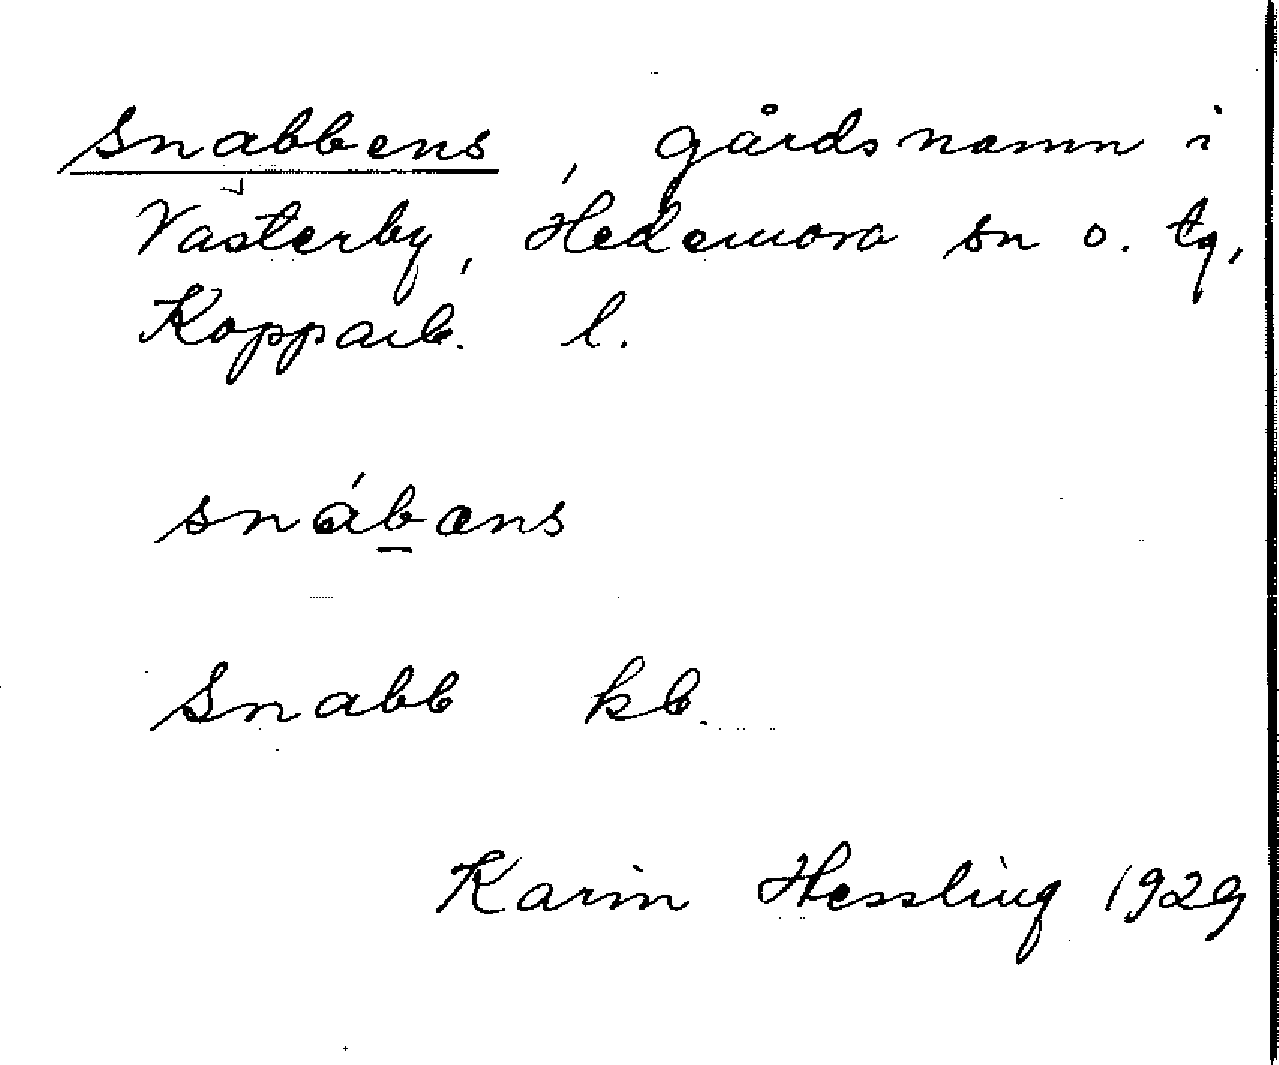 Snabbens, gårdsnamn i
Västerby, Hedemora sn o. tg,
Kopparb. l.
snábæns
Snabb kb.
Karin Hessling 1929